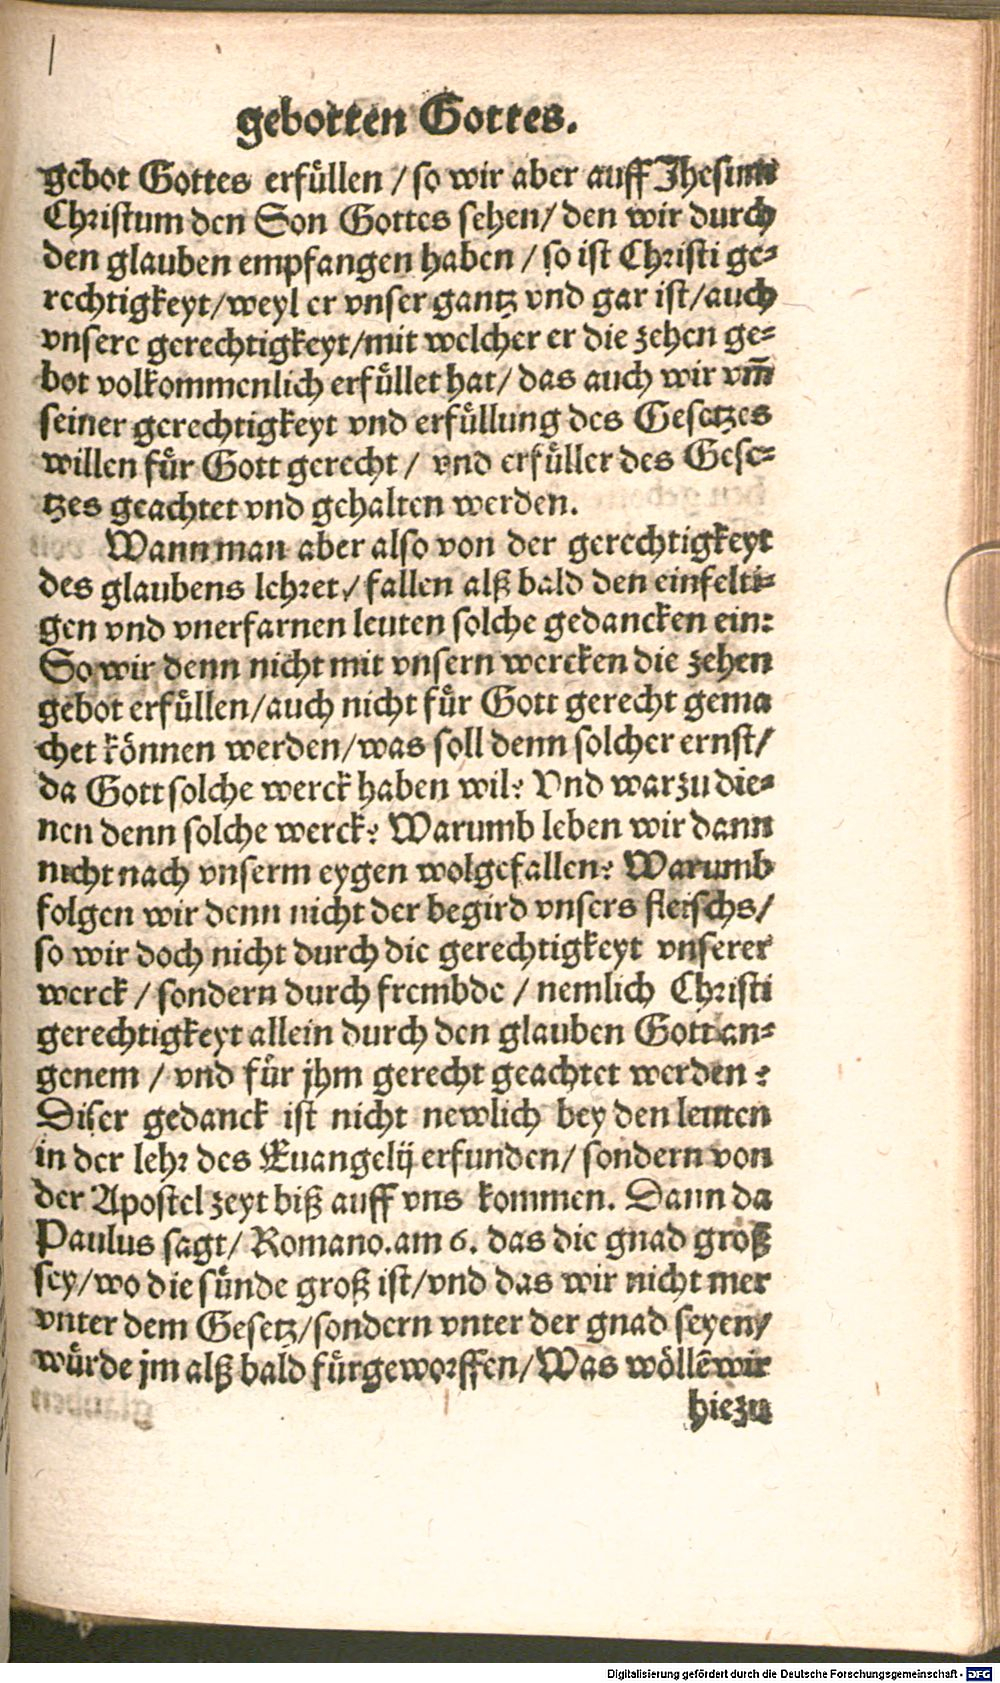 gebotten Gottes.
gebot Gottes erfüllen / so wir aber auff Jhesum
Christum den Son Gottes sehen / den wir durch
den glauben empfangen haben / so ist Christi ge-
rechtigkeyt / weyl er vnser gantz vnd gar ist / auch
vnsere gerechtigkeyt / mit welcher er die zehen ge-
bot volkommenlich erfüllet hat / das auch wir vm̃
seiner gerechtigkeyt vnd erfüllung des Gesetzes
willen für Gott gerecht / vnd erfüller des Gese-
tzes geachtet vnd gehalten werden.
Wann man aber also von der gerechtigkeyt
des glaubens lehret / fallen alß bald den einfelti-
gen vnd vnerfarnen leuten solche gedancken ein:
So wir denn nicht mit vnsern wercken die zehen
gebot erfüllen / auch nicht für Gott gerecht gema
chet können werden / was soll denn solcher ernst /
da Gott solche werck haben wil? Vnd warzu die-
nen denn solche werck? Warumb leben wir dann
nicht nach vnserm eygen wolgefallen? Warumb
folgen wir denn nicht der begird vnsers fleischs /
so wir doch nicht durch die gerechtigkeyt vnserer
werck / sondern durch frembde / nemlich Christi
gerechtigkeyt allein durch den glauben Gott an-
genem / vnd für jhm gerecht geachtet werden?
Diser gedanck ist nicht newlich bey den leuten
in der lehr des Euangelij erfunden / sondern von
der Apostel zeyt biß auff vns kommen. Dann da
Paulus sagt / Romano. am 6. das die gnad groß
sey / wo die sünde groß ist / vnd das wir nicht mer
vnter dem Gesetz / sondern vnter der gnad seyen /
würde jm alß bald fürgeworffen / Was wöllẽ wir
hiezu
Digitalisierung gefördert durch die Deutsche Forschungsgemeinschaft - DFG